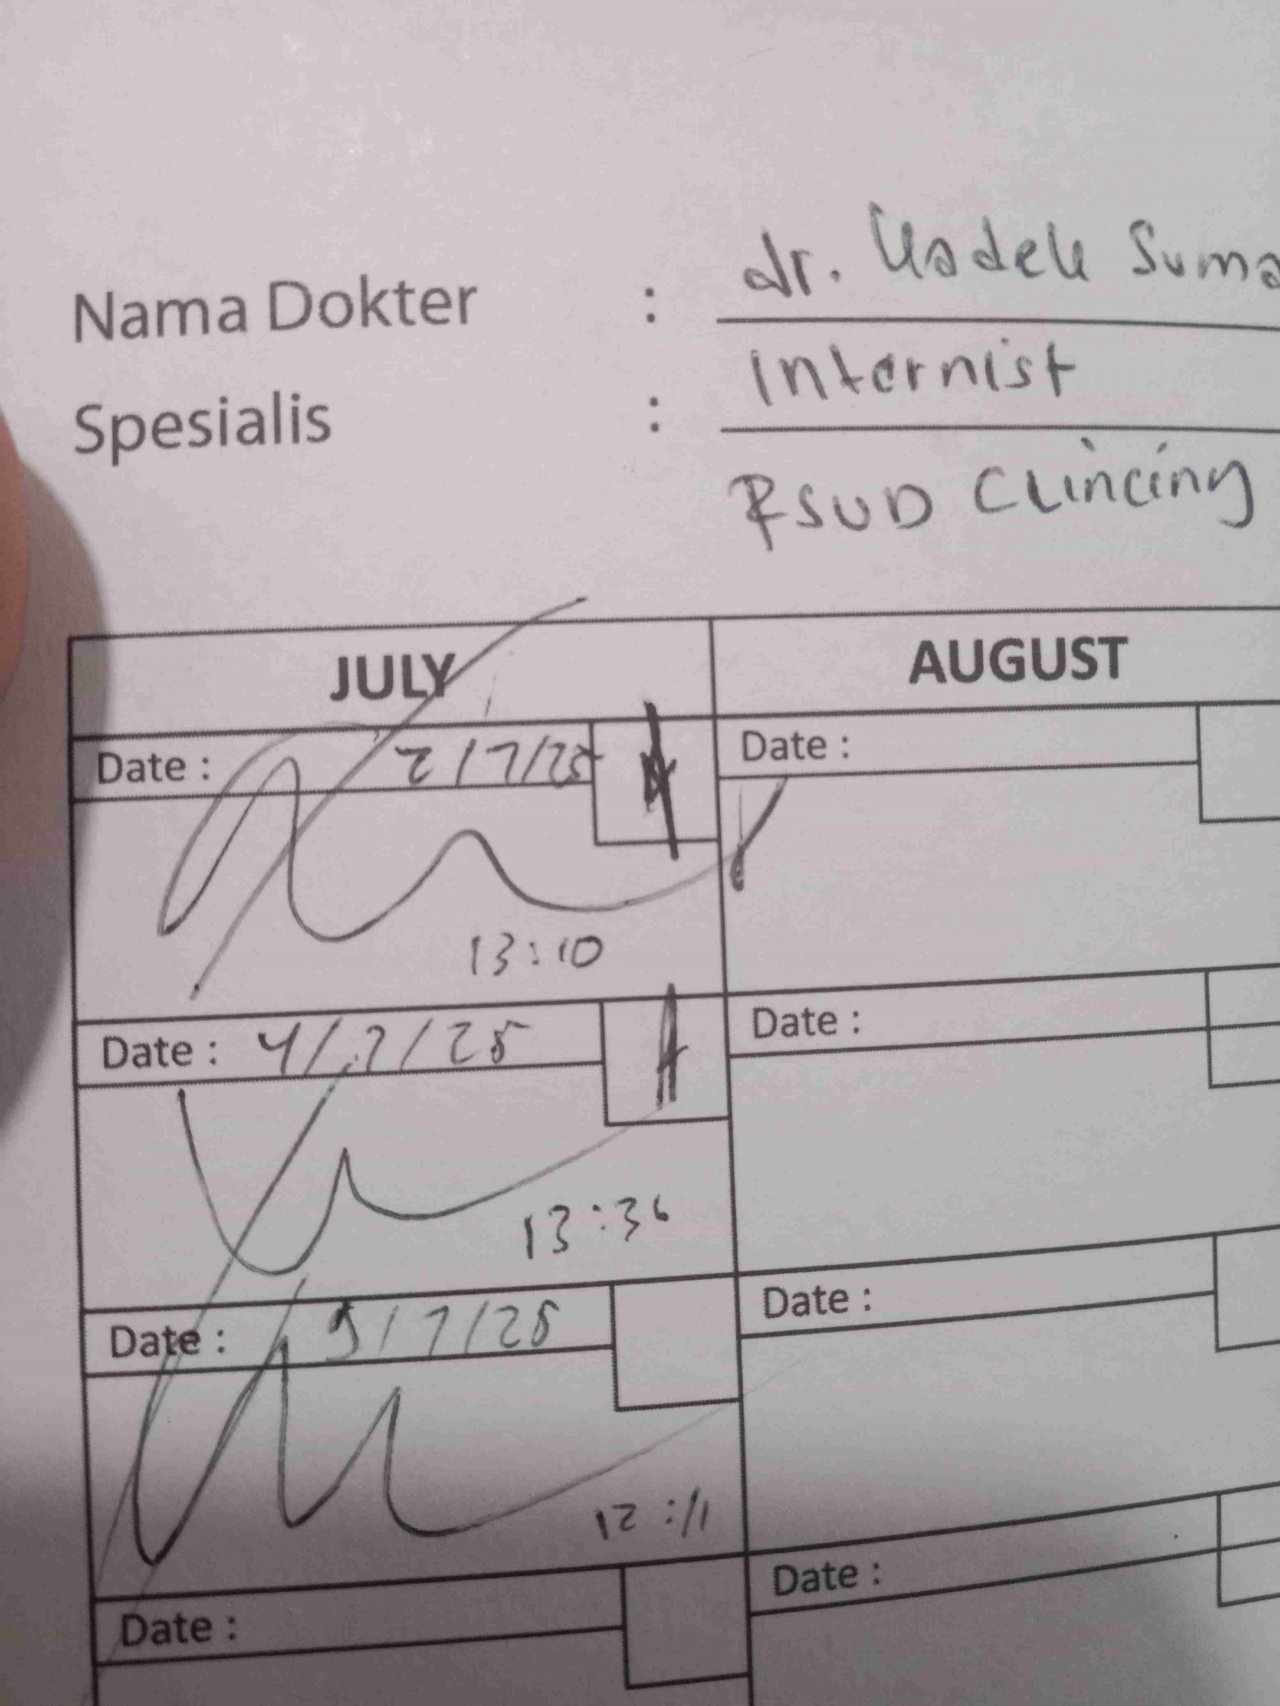 Nama Dokter : dr. Kadek Suma
Spesialis : Internist
RSUD Cilincing
JULY
AUGUST
Date : 2/7/25
Date :
13:10
Date : 4/7/25
Date :
13:36
Date : 5/7/25
Date :
12:11
Date :
Date :